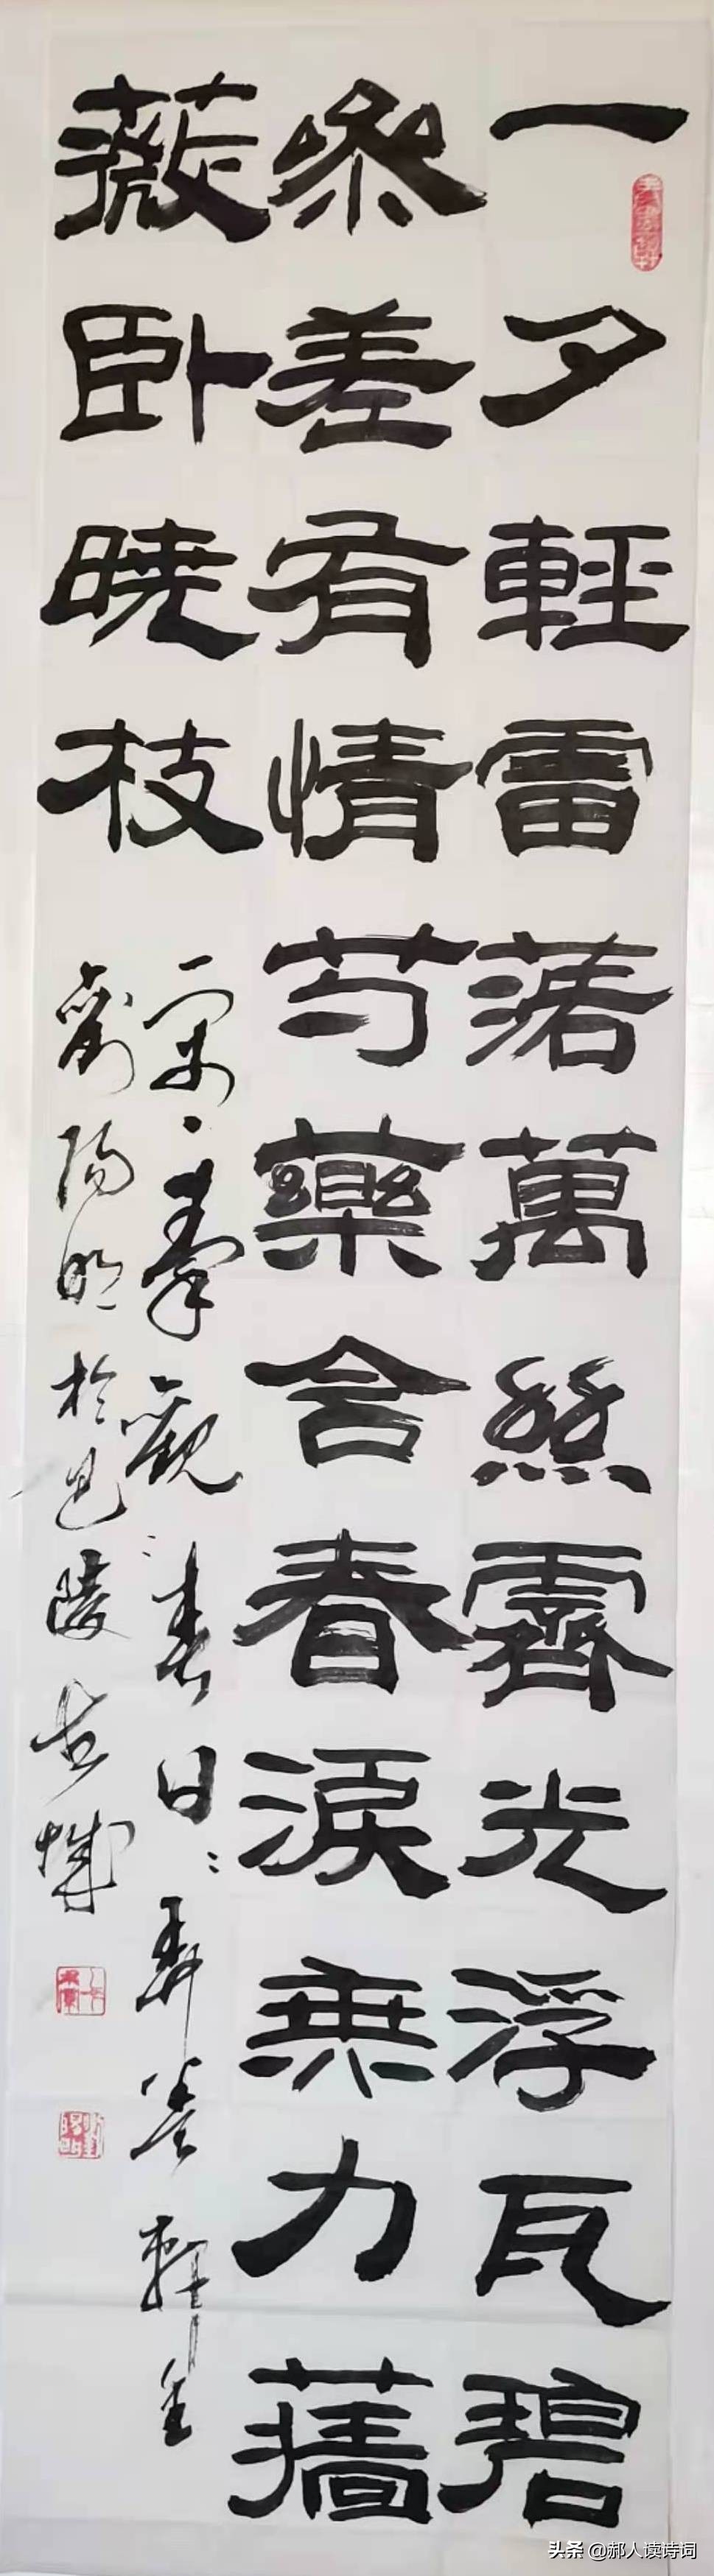 一夕輕雷落萬絲霽光浮瓦碧
參差有情芍藥含春淚無力蔷
薇卧曉枝
宋秦觀春日
劉陽明於巴陵古城
头条 @郝人读诗词